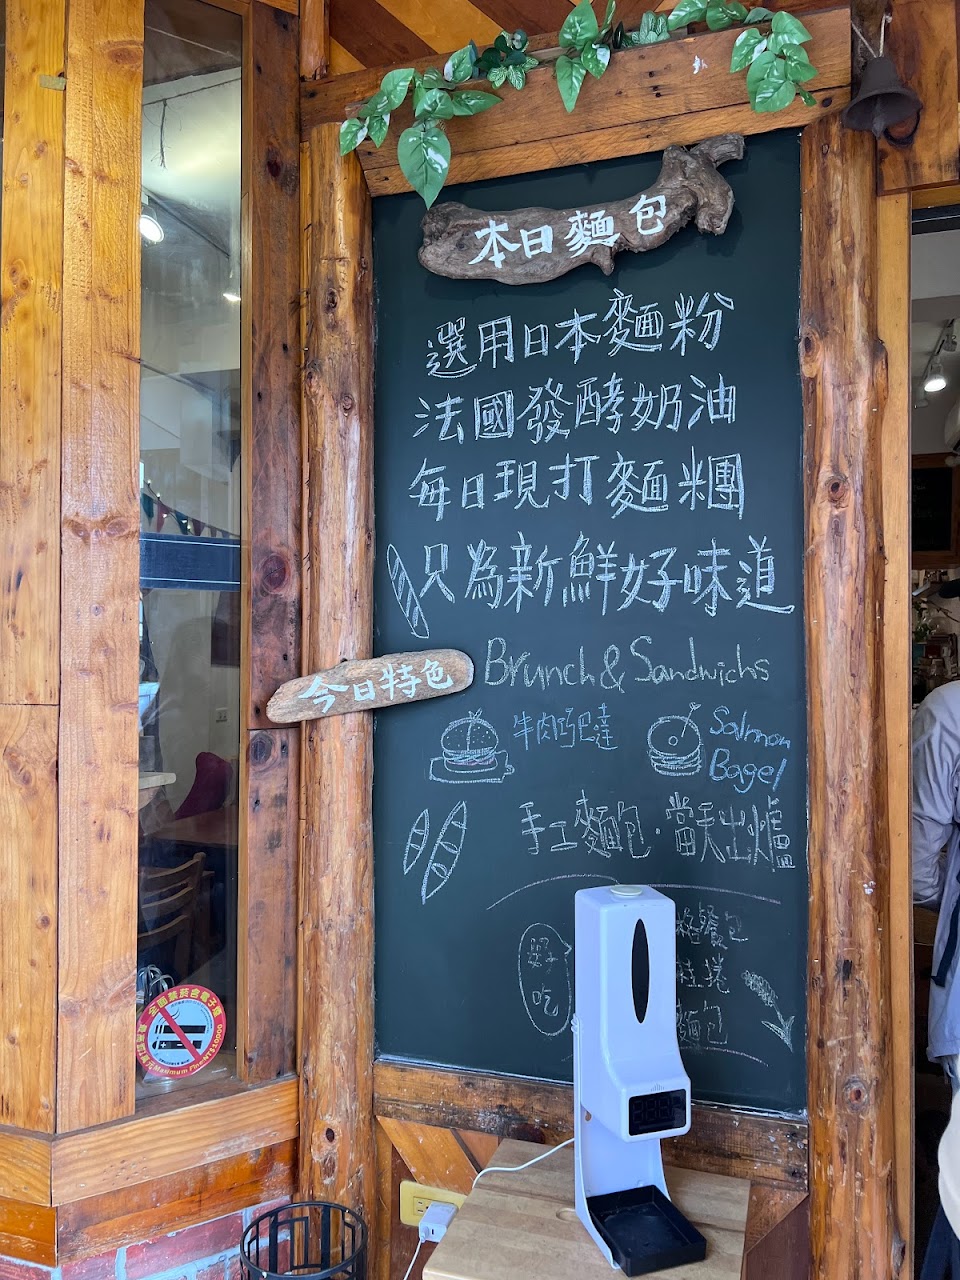 本日麵包
選用日本麵粉
法國發酵奶油
每日現打麵糰
只為新鮮好味道
今日特色
Brunch & Sandwichs
牛肉巧巴達
Salmon
Bagel
手工麵包·當天出爐
好吃
餐包
捲
麵包
Maximum Fine NT$10000